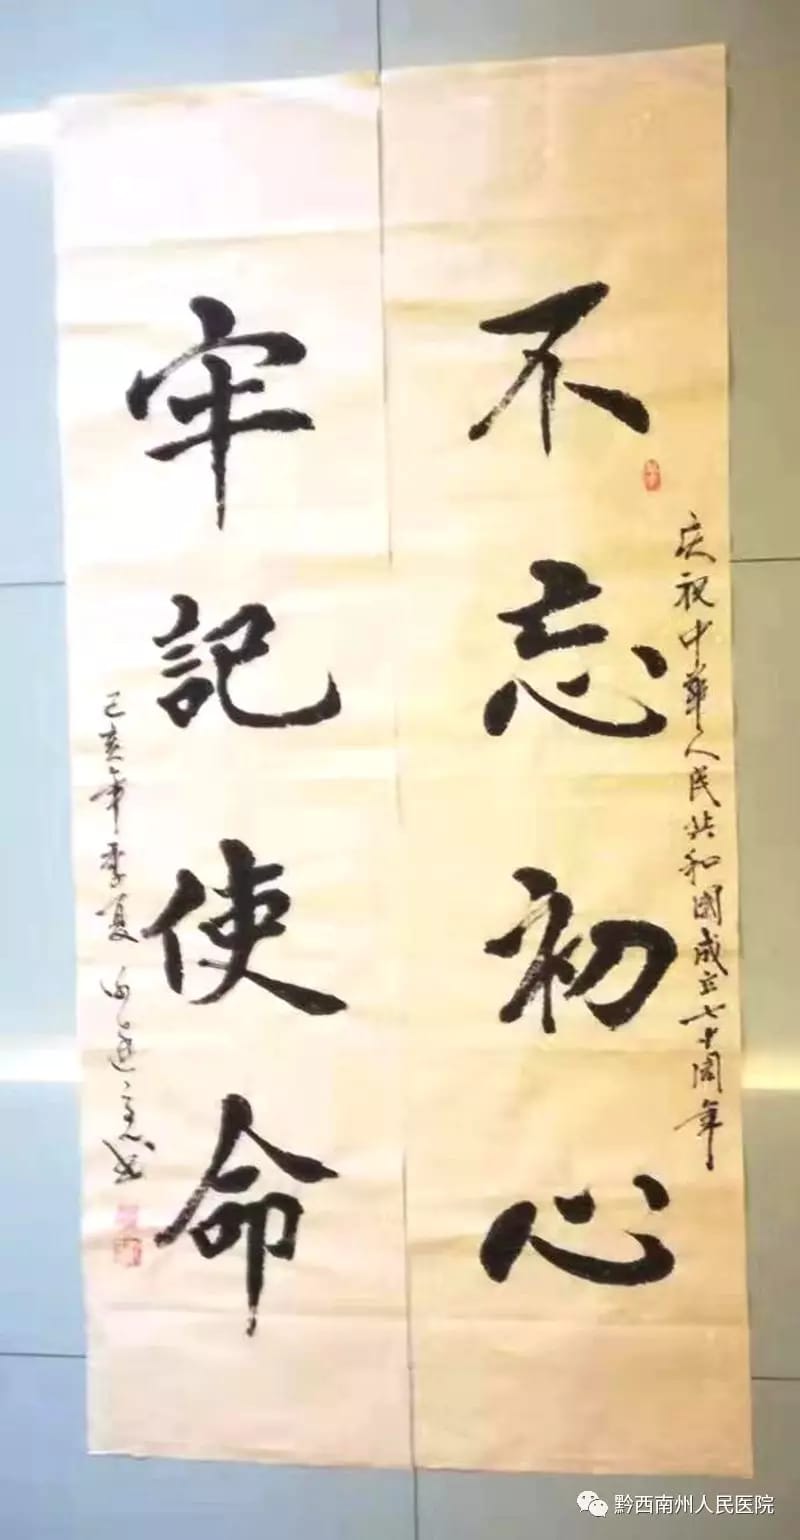 庆祝中华人民共和國成立七十周年
不忘初心
牢記使命
己亥年季夏
黔西南州人民医院